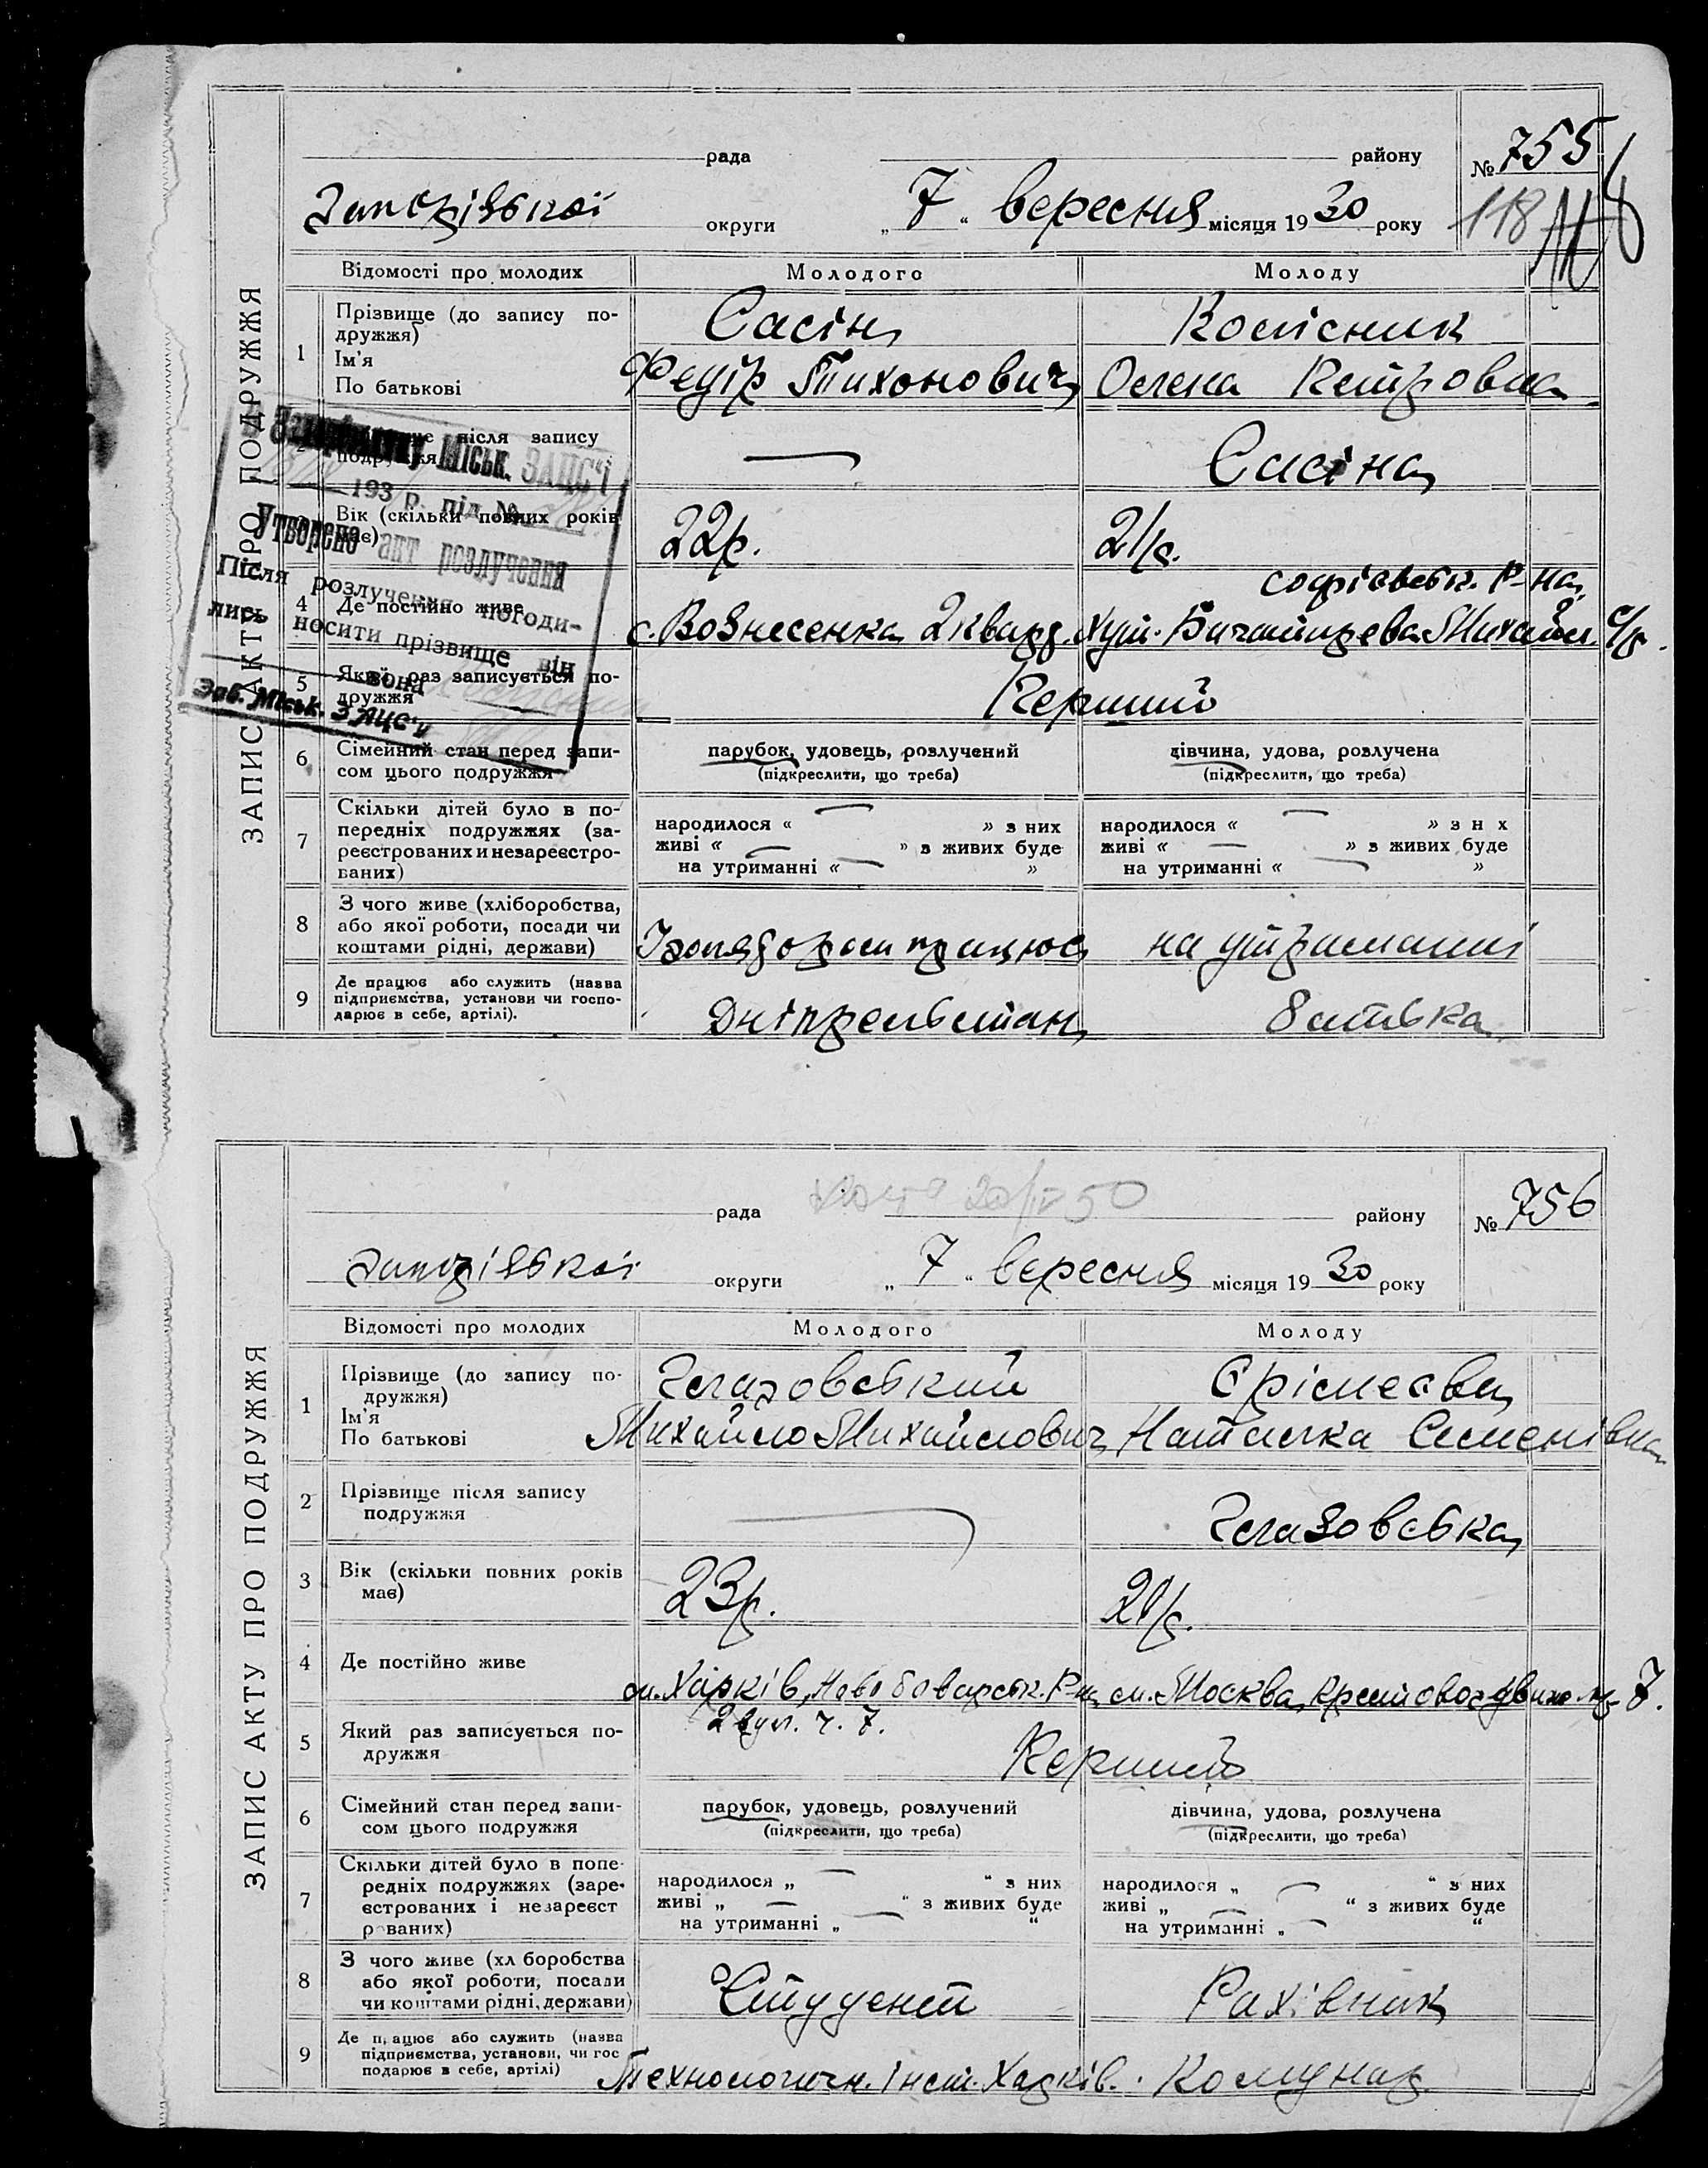 рада району № 755
Запорізької округи „ 7 “ вересня місяця 19 30 року 118
ЗАПИС АКТУ ПРО ПОДРУЖЖЯ
Відомості про молодих Молодого Молоду
1 Прізвище (до запису по-
дружжя) Сасін Колісник
Ім'я
По батькові Федір Тихонович Олена Петровна
2 після запису
— Сасіна
Запорізькому Міськ. ЗАЦС'і
193 р. під №
Утворено акт розлучення
Після розлучення погоди-
лись носити прізвище він
вона
Зав. Міськ. ЗАЦС'у
Вік (скільки повних років
має) 22р. 21р.
4 Де постійно живе Софієвськ. Р-на,
с. Вознесенка 2 кварт. хут. с/р.
5 Який раз записується по-
дружжя Перший
6 Сімейний стан перед запи-
сом цього подружжя парубок, удовець, розлучений дівчина, удова, розлучена
(підкреслити, що треба) (підкреслити, що треба)
7 Скільки дітей було в по-
передніх подружжях (за-
реєстрованих и незареєстро-
ваних)
народилося « — » з них народилося « — » з н х
живі « — » з живих буде живі « — » з живих буде
на утриманні « — » на утриманні « — »
8 З чого живе (хліборобства,
або якої роботи, посади чи
коштами рідні, держави) працює на утриманні
9 Де працює або служить (назва
підприємства, установи чи госпо-
дарює в себе, артілі). Дніпрельстан батька
рада району № 756
Запорізької округи „ 7 “ вересня місяця 19 30 року
ЗАПИС АКТУ ПРО ПОДРУЖЖЯ
Відомості про молодих Молодого Молоду
1 Прізвище (до запису по-
дружжя) Глазовський Єрімеєва
Ім'я
По батькові Михайло Михайлович Наталка Семенівна
2 Прізвище після запису
подружжя — Глазовська
3 Вік (скільки повних років
має) 23р. 21р.
4 Де постійно живе м. Харків, Ново Баварськ. Р-н, м. Москва, 7.
2 вул. ч. 7.
5 Який раз записується по-
дружжя Перший
6 Сімейний стан перед запи-
сом цього подружжя парубок, удовець, розлучений дівчина, удова, розлучена
(підкреслити, що треба) (підкреслити, що треба)
7 Скільки дітей було в попе-
редніх подружжях (заре-
єстрованих і незареєст
р ваних)
народилося „ — “ з них народилося „ — “ з них
живі „ — “ з живих буде живі „ — “ з живих буде
на утриманні „ — “ на утриманні „ — “
8 З чого живе (хл боробства
або якої роботи, посади
чи коштами рідні, держави) Студент Рахівник
9 Де п ацює або служить (назва
підприємства, установи, чи гос
подарює в себе, артілі) Технологичн. Інст. Харків. Комунар